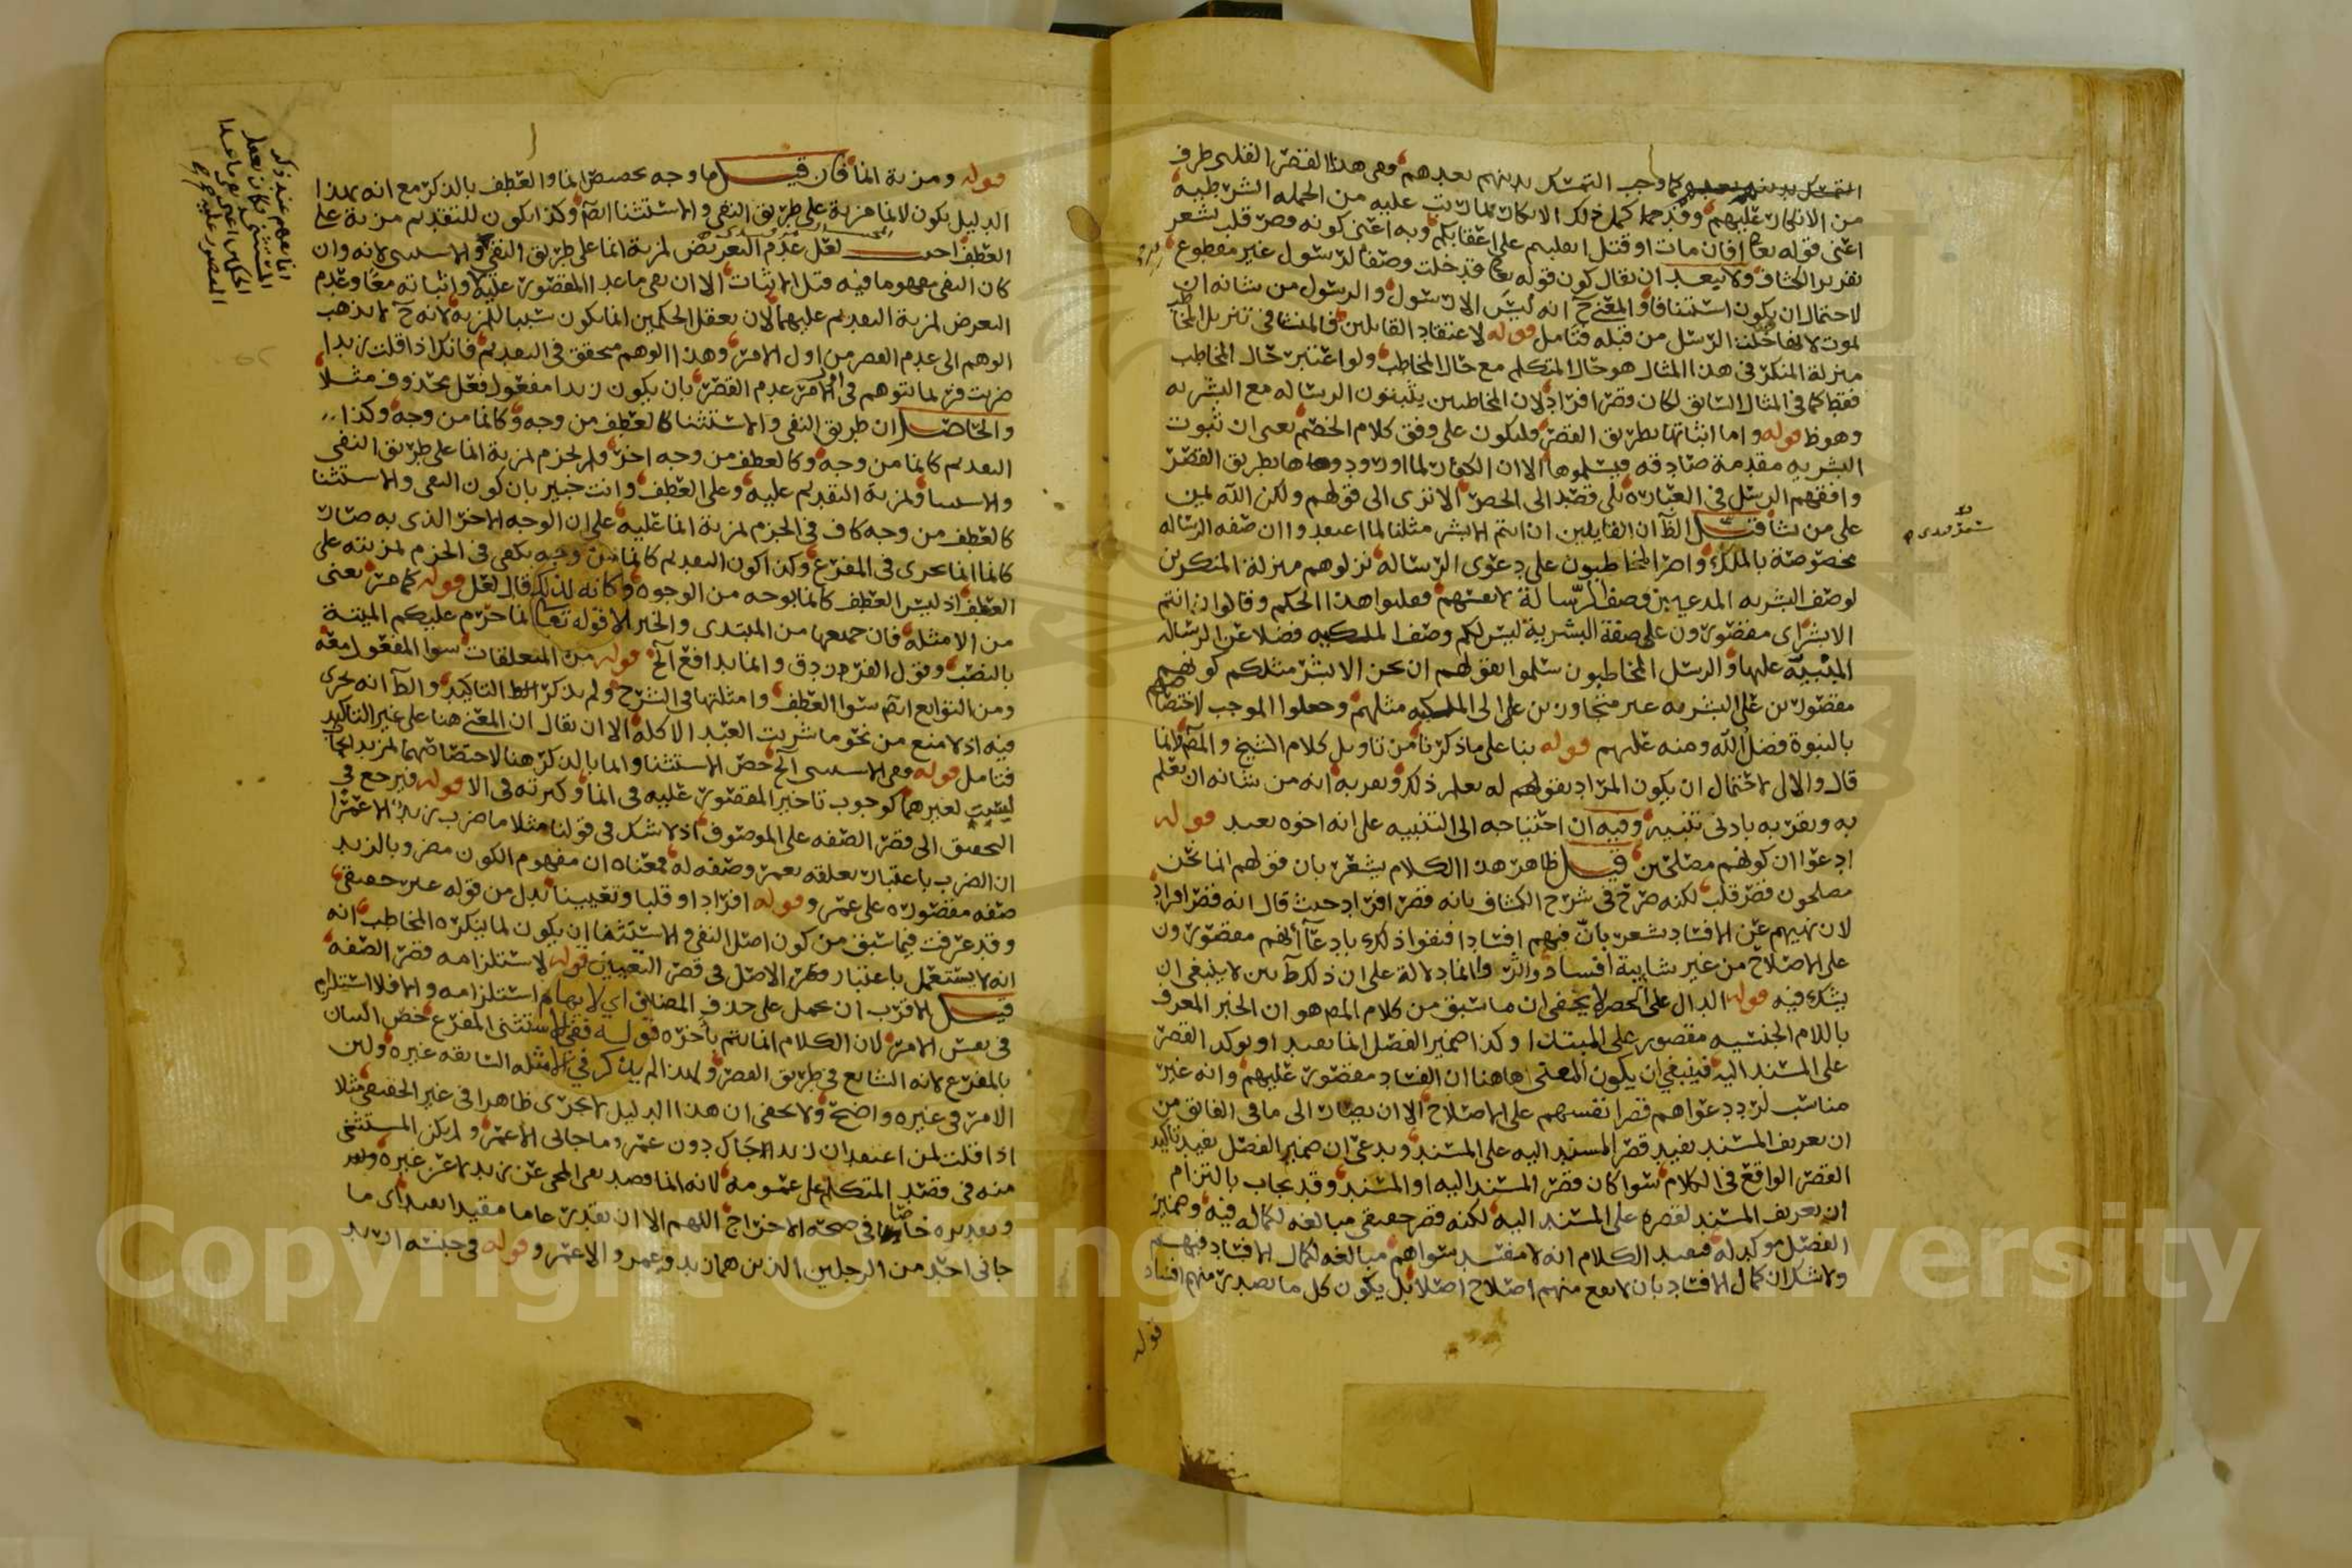 كما وجب التمسك بدينهم بعدهم وهى هذا القصر القلبى طرف
من الانكار عليهم وقد جملة ذلك الانكار لما ترتب عليه من الجمله الشرطيه
اعنى قوله تعا افان مات او قتل انقلبتم على اعقابكم وبه اعنى كونه قصر قلب يشعر
تقرير الكشاف ولا يبعد ان يقال كون قوله تعا قد خلت وصفا لرسول غير مقطوع
لاحتمال ان يكون استئنافا والمعنى ح انه ليس الا رسول والرسول من شانه ان
يموت لا فما خلت الرسل من قبله فتامل قوله لاعتقاد القايلين فالمنشا فى تنزيل المخاطب
منزلة المنكر فى هذا المثال هو حال المتكلم مع حال المخاطب ولو اعتبر حال المخاطب
فقط كما فى المثال السابق لكان قصر افراد لان المخاطبين يثبتون الرساله مع البشريه
وهو ظ قوله واما اثباتها بطريق القصر فليكون على وفق كلام الخصم يعنى ان ثبوت
البشريه مقدمة صادقه فيسلموها الا ان الكفار لما اوردوها بطريق القصر
وافقهم الرسل فى العباره بلى قصد الى الحصر الا ترى الى قولهم ولكن الله يمن
على من يشا قيل الظ ان القايلين ان انتم الا بشر مثلنا لما اعتقدوا ان صفه الرساله
مخصوصة بالملك واصر المخاطبون على دعوى الرساله نزلوهم منزلة المنكرين
لوصف البشريه المدعيين وصف الرسالة لانفسهم فقلبوا هذا الحكم وقالوا ان انتم
الا بشر اى مقصورون على صفة البشرية ليس لكم وصف الملكيه فضلا عن الرساله
المبنية عليها والرسل المخاطبون سلموا بقولهم ان نحن الا بشر مثلكم كونهم
مقصورين على البشريه غير متجاوزين على الى الملكيه مثلهم وجعلوا الموجب لاختصاصهم
بالنبوة فضل الله ومنه عليهم قوله بنا على ما ذكرنا من تاويل كلام الشيخ والمص لانما
قال والاولى لاحتمال ان يكون المراد بقولهم له يعلم ذلك ويقر به انه من شانه ان يعلم
به ويقر به بادنى تنبيه وفيه ان احتياجه الى التنبيه على انه اخوه بعيد قوله
ادعوا ان كونهم مصلحين قيل ظاهر هذا الكلام يشعر بان قولهم انما نحن
مصلحون قصر قلب لكنه صرح فى شرح الكشاف بانه قصر افراد حيث قال انه قصر افراد
لان نهيهم عن الافساد يشعر بان فيهم افسادا فنفوا ذلك بادعا انهم مقصورون
على الاصلاح من غير شايبة افساد واثر وانما دلالة على ان ذلك ظ بين لا ينبغى ان
يشك فيه قوله الدال على الحصر لا يخفى ان ما سبق من كلام المص هو ان الخبر المعرف
باللام الجنسيه مقصور على المبتدا وكذا ضمير الفصل انما يفيد او يوكد القصر
على المسند اليه فينبغى ان يكون المعنى هاهنا ان الفساد مقصور عليهم وانه غير
مناسب لرد دعواهم قصر انفسهم على الاصلاح الا ان يصار الى ما فى الفايق من
ان تعريف المسند يفيد قصر المسند اليه على المسند ويدعى ان ضمير الفصل يفيد تاكيد
القصر الواقع فى الكلام سوا كان قصر المسند اليه او المسند وقد يجاب بالتزام
ان تعريف المسند لقصره على المسند اليه لكنه قصر حقيقى مبالغه لكماله فيه وضمير
الفصل موكد له فيفيد الكلام انه لا مفسد سواهم مبالغه لكمال الافساد فيهم
ولا شك ان كمال الافساد بان لا يقع منهم اصلاح اصلا بل يكون كل ما يصدر منهم افساد
قوله
قوله ومزية انما فان قيل ما وجه تخصيص انما والعطف بالذكر مع انه بهذا
الدليل يكون لانما مزية على طريق النفى والاستثنا ايضا وكذا يكون للتقديم مزية على
العطف اجيب لعل عدم التعريض لمزية انما على طريق النفى والاستثنى لانه وان
كان النفى مفهوما فيه قبل الاثبات الا ان نفى ما عدا المقصور عليه واثباته معا وعدم
التعرض لمزية التقديم عليهما لان تعقل الحكمين انما يكون سببا للمزية لانه ح لا يذهب
الوهم الى عدم القصر من اول الامر وهذا الوهم متحقق فى التقديم فانك اذا قلت زيدا
ضربت فربما يتوهم فى اول الامر عدم القصر بان يكون زيدا مفعول فعل محذوف مثلا
والحاصل ان طريق النفى والاستثنا كالعطف من وجه وكانما من وجه وكذا
التقديم كانما من وجه وكالعطف من وجه اخر ولم يجزم لمزية انما على طريق النفى
والاستثنا ولمزية التقديم عليه وعلى العطف وانت خبير بان كون النفى والاستثنا
كالعطف من وجه كاف فى الجزم لمزية انما عليه على ان الوجه الاخر الذى به صار
كانما انما يجرى فى المفرغ وكذا كون التقديم كانما من وجه يكفى فى الجزم لمزيته على
العطف اذ ليس العطف كانما بوجه من الوجوه وكانه لذلك قال لعل قوله كما مر يعنى
من الامثلة فان جميعها من المبتدى والخبر الا قوله تعا انما حرم عليكم الميتة
بالنصب وقول الفرزدق وانما يدافع الخ قوله من المتعلقات سوا المفعول معه
ومن التوابع ايضا سوا العطف وامثلتها فى الشرح ولم يذكر التاكيد والظ انه يجرى
فيه اذ لا منع من نحو ما شريت العبد الا كله الا ان يقال ان المعنى هنا على غير التاكيد
فتامل قوله وفى الاستثنى الخ خص الاستثنا وانما بالذكر هنا لاختصاصهما لمزيد ابحاث
ليست لغيرهما كوجوب تاخير المقصور عليه فى انما وكثرته فى الا قوله فيرجع فى
التحقيق الى قصر الصفه على الموصوف اذ لا شك فى قولنا مثلا ما ضرب زيد الا عمرا
ان الضرب باعتبار تعلقه بعمر وصفه له فمعناه ان مفهوم الكون مضروبا لزيد
صفه مقصوره على عمر وقوله افرادا وقلبا وتعيينا بدل من قوله غير حقيقى
وقد عرفت فيما سبق من كون اصل النفى والاستثنا ان يكون لما ينكره المخاطب انه
انه لا يستعمل باعتبار الاصل فى قصر التعيين قوله لاستلزامه قصر الصفه
قيل الاقرب ان يحمل على حذف المضاف اى لايهام استلزامه والا فلا استلزام
فى نفس الامر لان الكلام انما يتم بآخره قوله ففى الاستثنى المفرغ خص البيان
بالمفرغ لانه الشايع فى طريق القصر ولهذا لم يذكر فى الامثله السابقه غيره ولبن
الامر فى غيره واضح ولا يخفى ان هذا الدليل لا يجرى ظاهرا فى غير الحقيقى مثلا
اذا قلت لمن اعتقد ان زيدا جاك دون عمرو ما جانى الا عمرو لم يكن المستثنى
منه فى قصد المتكلم على عمومه لانه انما قصد نفى المجى عن زيد لا عن غيره
وتقديره خاصا فى صحة الاخراج اللهم الا ان يقدر عاما مقيدا بعيدا اى ما
جانى احد من الرجلين الذين هما زيد وعمرو الا عمر وقوله فى جنسه اريد